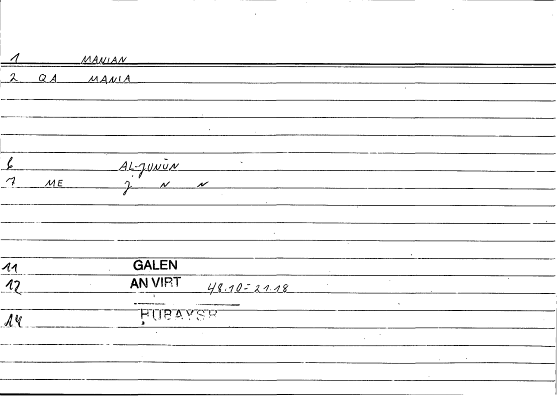 1 MANIAN
2 QA MANIA
6 AL-JUNŪN
7 ME J N N
11 GALEN
12 AN VIRT 48.10 = 21.18
14 HUBAYSH